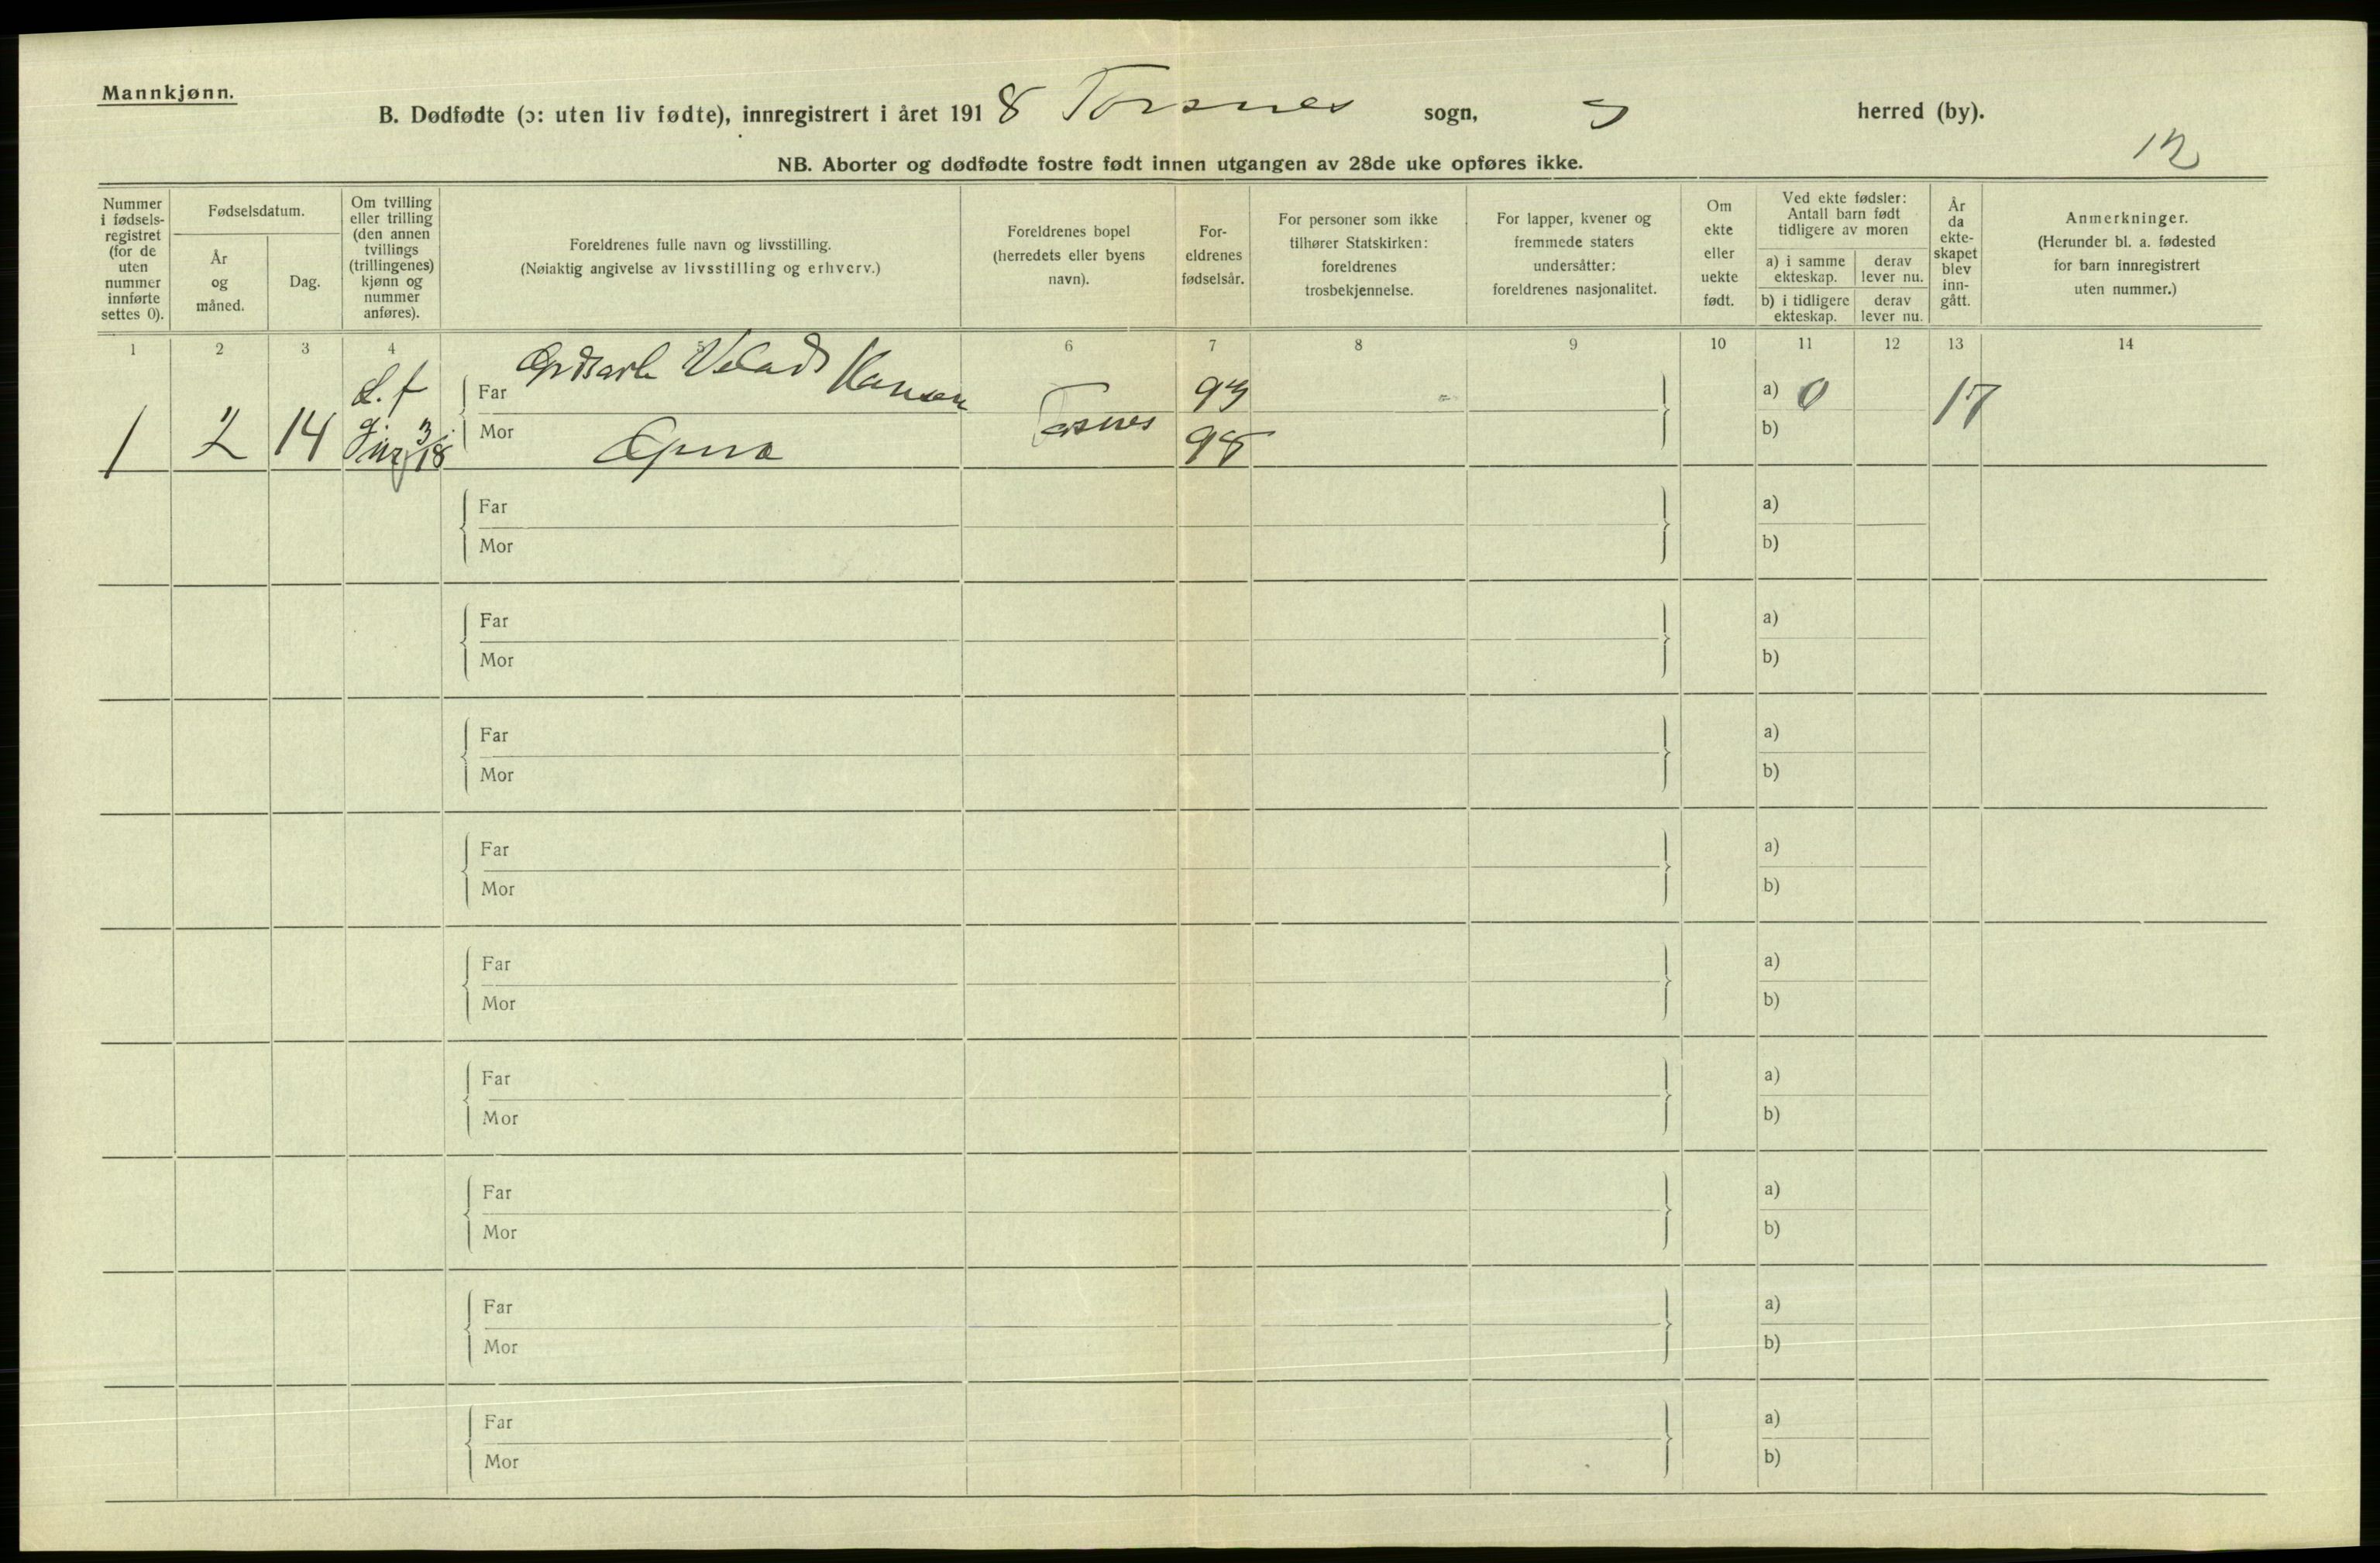 Mannkjønn.
B. Dødfødte (ɔ: uten liv fødte), innregistrert i året 1918 Torsnes sogn, " herred (by).
12
NB. Aborter og dødfødte fostre født innen utgangen av 28de uke opføres ikke.
Nummer i fødsels-registret (for de uten nummer innførte settes 0).
Fødselsdatum.
År og måned.
Dag.
Om tvilling eller trilling (den annen tvillings (trillingenes) kjønn og nummer anføres).
Foreldrenes fulle navn og livsstilling.
(Nøiaktig angivelse av livsstilling og erhverv.)
Foreldrenes bopel (herredets eller byens navn).
For-eldrenes fødselsår.
For personer som ikke tilhører Statskirken: foreldrenes trosbekjennelse.
For lapper, kvener og fremmede staters undersåtter: foreldrenes nasjonalitet.
Om ekte eller uekte født.
Ved ekte fødsler: Antall barn født tidligere av moren
a) i samme ekteskap.
derav lever nu.
b) i tidligere ekteskap.
derav lever nu.
År da ekte-skapet blev inn-gått.
Anmerkninger.
(Herunder bl. a. fødested for barn innregistrert uten nummer.)
1 2 3 4 5 6 7 8 9 10 11 12 13 14
1 2 14
Far Hansen 93 a) 0 17
Mor Torsnes 98 b)
Far a)
Mor b)
Far a)
Mor b)
Far a)
Mor b)
Far a)
Mor b)
Far a)
Mor b)
Far a)
Mor b)
Far a)
Mor b)
Far a)
Mor b)
Far a)
Mor b)